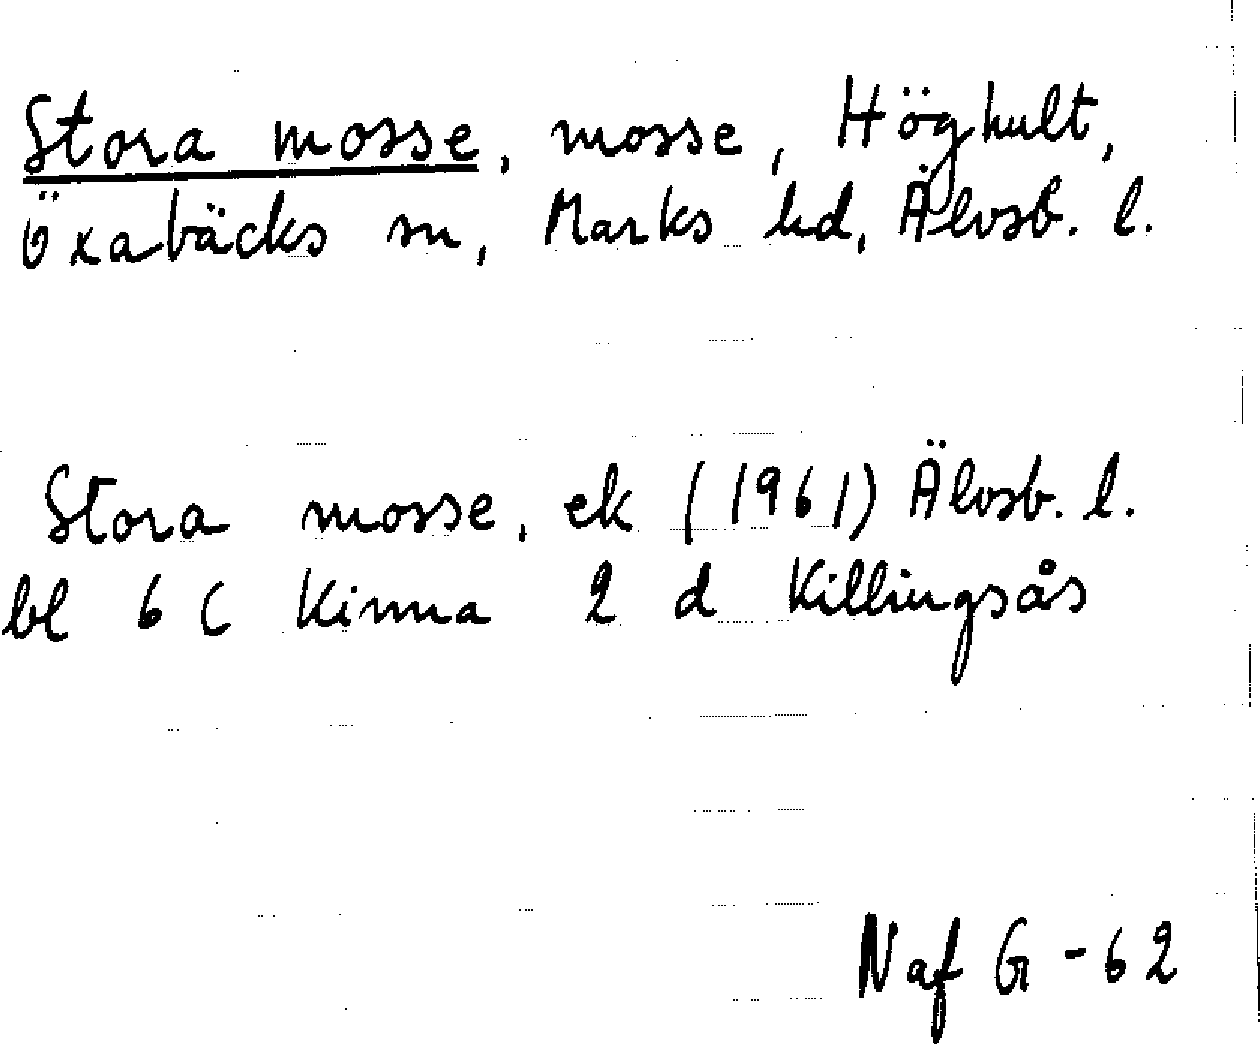 Stora mosse, mosse, Höghult,
Öxabäcks sn, Marks hd, Älvsb. l.
Stora mosse, ek (1961) Älvsb. l.
bl 6 C Kinna 2 d Killingsås
Naf G - 62